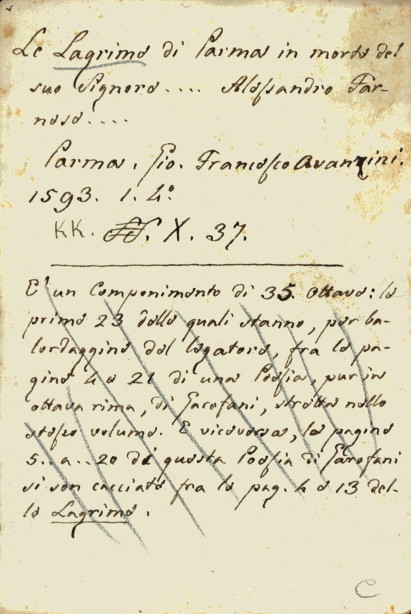 Le Lagrime di Parma in morte del
suo Signore.... Alessandro Far-
nese....
Parma, Gio. Francesco Avanzini.
1593. 1. 4.º
KK. X. 37.
E' un Componimento di 35. Ottave: le
prime 23 delle quali stanno, per ba-
lordaggine del legatore, fra le pa-
gine 4 e 21 di una Poesia, pur in
ottava rima, di Garofani, stretta nello
stesso volume. E viceversa, le pagine
5..a..20 di questa Poesia di Garofani
si son cacciate fra le pag. 4 e 13 del-
le Lagrime.
C